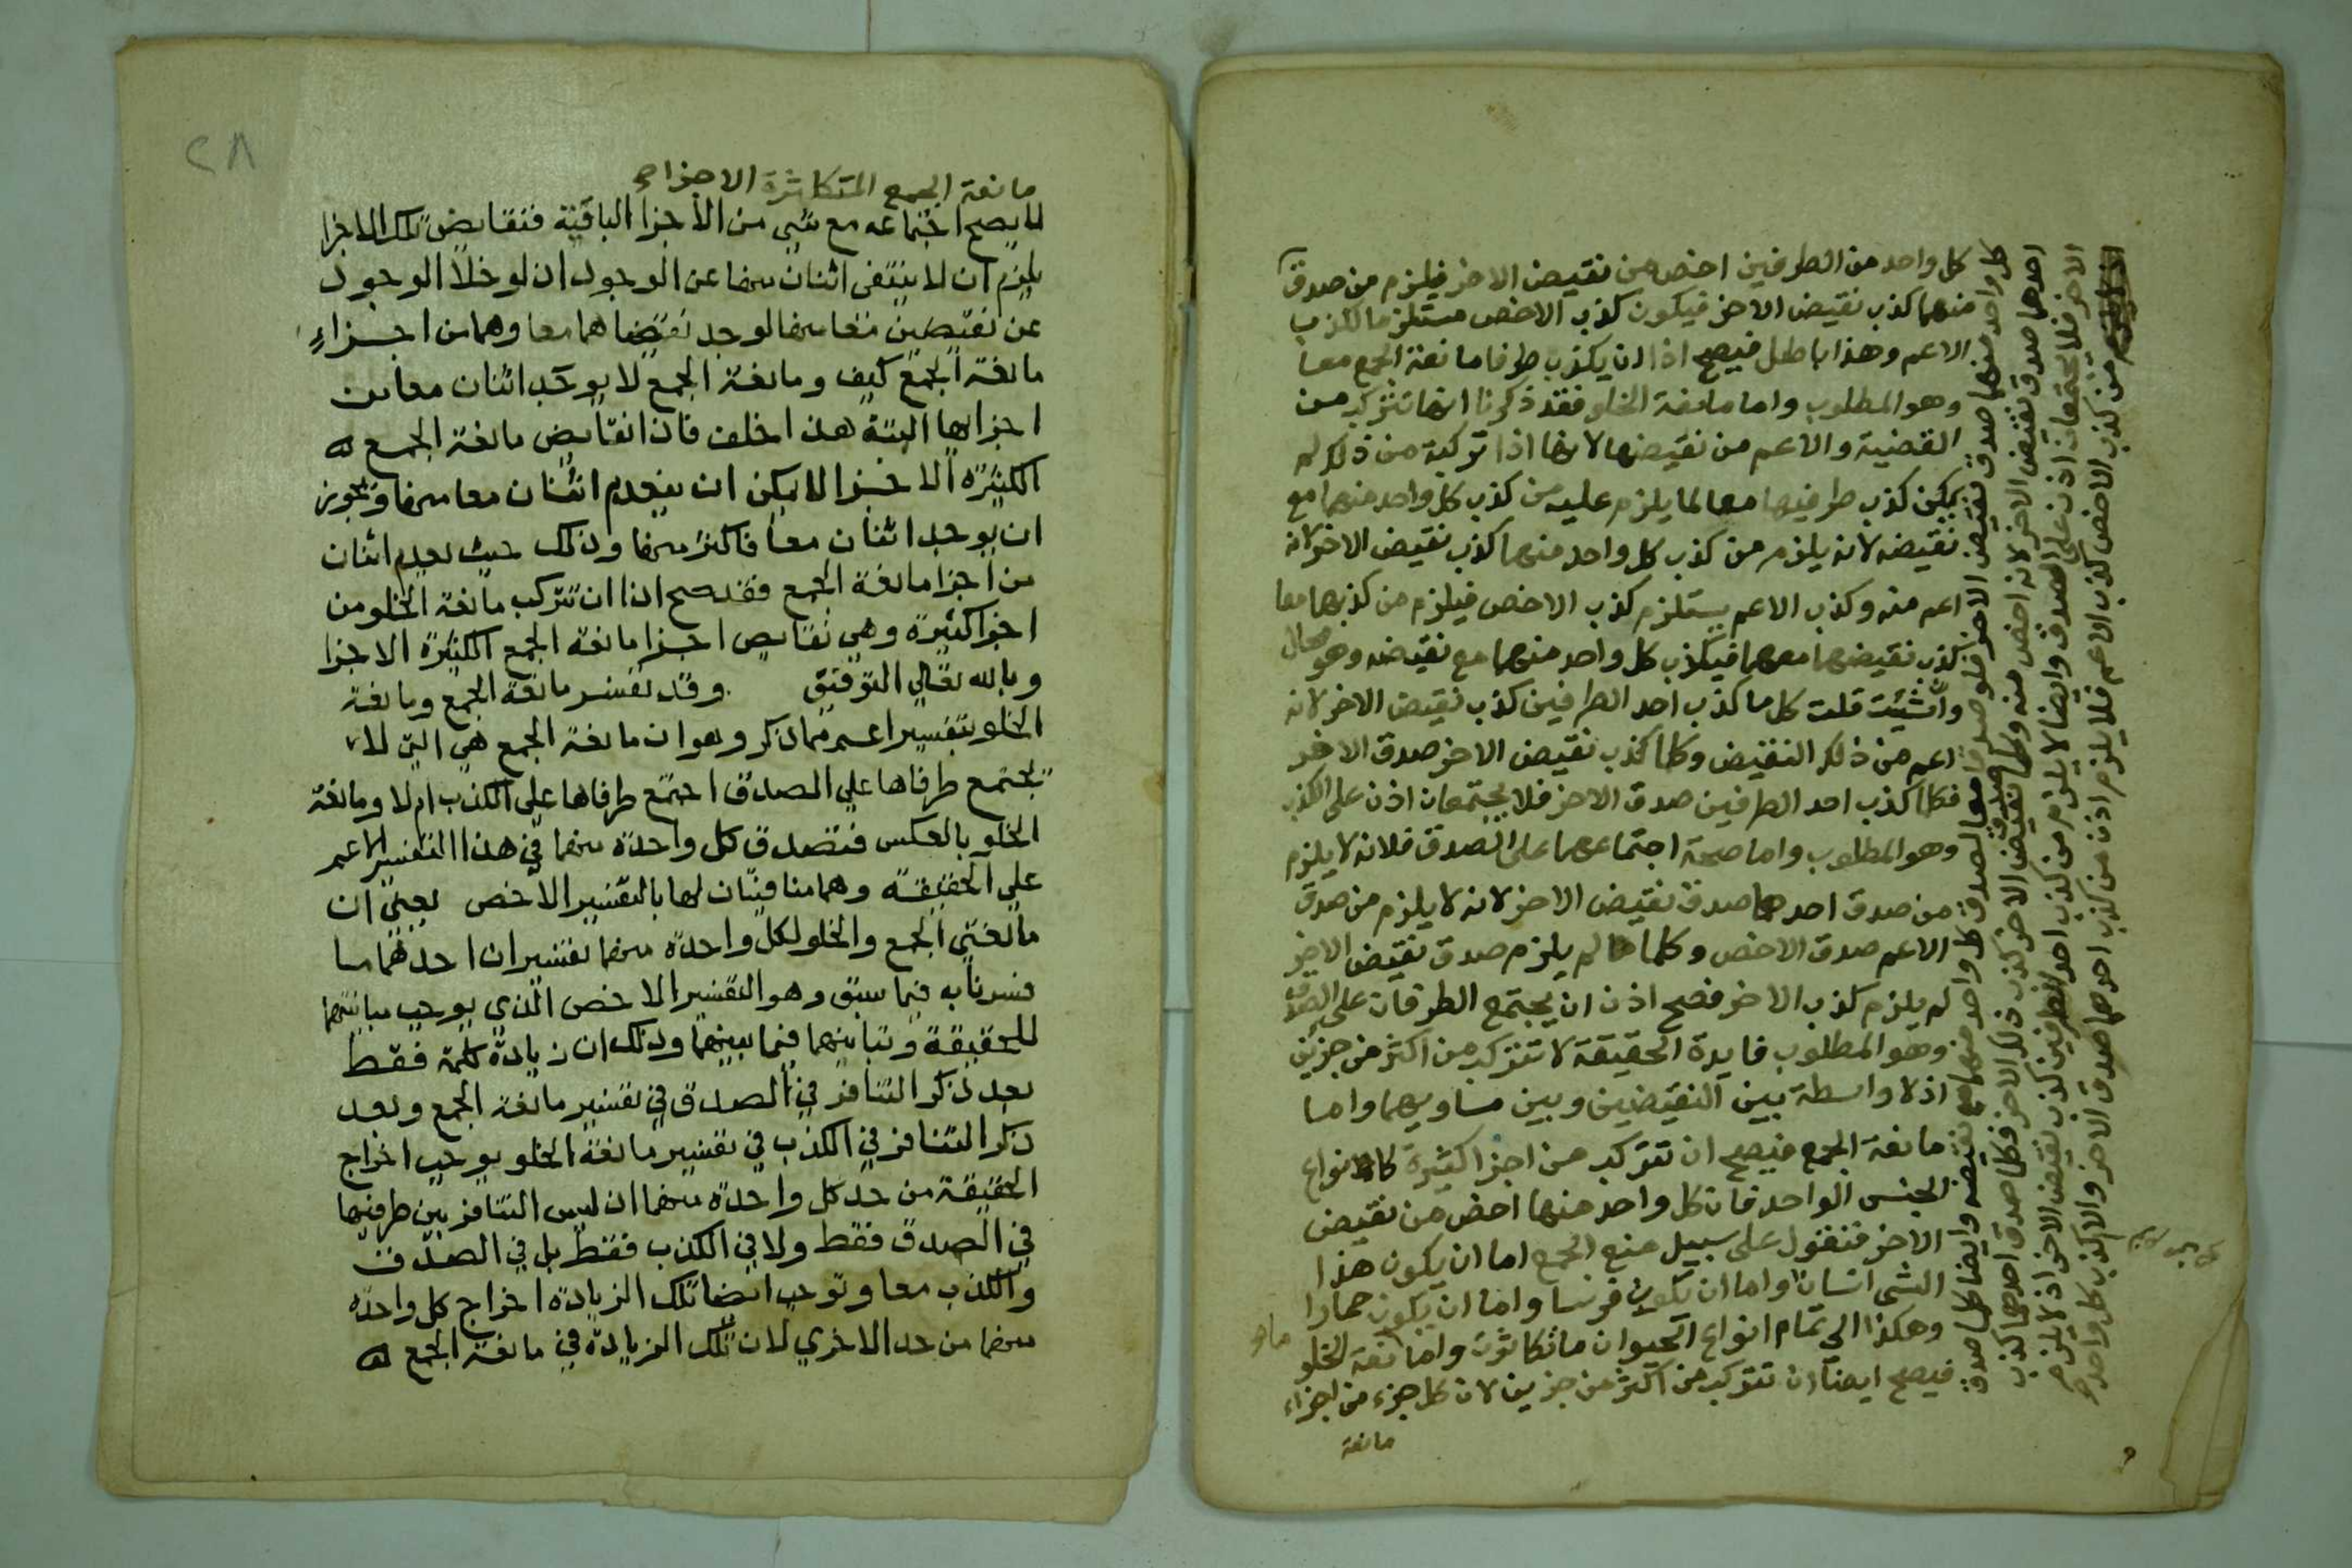 كل واحد من الطرفين اخص من نقيض الاخر فيلزم من صدق
منهما كذب نقيض الاخر فيكون كذب الاخص مستلزما لكذب
الاعم وهذا باطل فيصح اذا ان يكذب طرفا مانعة الجمع معا
وهو المطلوب واما مانعة الخلو فقد ذكرنا انها تتركب من
القضية والاعم من نقيضها لانها اذا تركبة من ذلك لم
يمكن كذب طرفيها معا لما يلزم عليه من كذب كل واحد منهما مع
نقيضه لانه يلزم من كذب كل واحد منهما كذب نقيض الاخر لانه
اعم منه وكذب الاعم يستلزم كذب الاخص فيلزم من كذبهما معا
كذب نقيضهما معهما فيكذب كل واحد منهما مع نقيضه وهو محال
وان شئت قلت كل ما كذب احد الطرفين كذب نقيض الاخر لانه
اعم من ذلك النقيض وكلما كذب نقيض الاخر صدق الاخر
فكلما كذب احد الطرفين صدق الاخر فلا يجتمعان اذن على الكذب
وهو المطلوب واما صحة اجتماعهما على الصدق فلانه لا يلزم
من صدق احدهما صدق نقيض الاخر لانه لا يلزم من صدق
الاعم صدق الاخص وكلما لم يلزم صدق نقيض الاخر
لم يلزم كذب الاخر فصح اذن ان يجتمع الطرفان على الصدق
وهو المطلوب فايدة الحقيقة لا تتركب من اكثر من جزين
اذ لا واسطة بين النقيضين وبين مساويهما واما
مانعة الجمع فيصح ان تتركب من اجزا كثيرة كانواع
الجنس الواحد فان كل واحد منها اخص من نقيض
الاخر فنقول على سبيل منع الجمع اما ان يكون هذا
الشي انسانا واما ان يكون فرسا واما ان يكون حمارا
وهكذا الى تمام انواع الحيوان ما تكاثرت واما مانعة الخلو
فيصح ايضا ان تتركب من اكثر من جزين لان كل جزء من اجزاء
مانعة
كل واحد منهما صدق نقيض الاخر فلو صدقا معا لصدق كل واحد منهما مع نقيضه وايضا كلما صدق
احدهما صدق نقيض الاخر لانه اخص منه وكلما صدق نقيض الاخر كذب ذلك الاخر فكلما صدق احدهما كذب
الاخر فلا يجتمعان اذن على الصدق وايضا لا يلزم من كذب احد الطرفين كذب نقيض الاخر اذ لا يلزم
من كذب الاخص كذب الاعم فلا يلزم اذن من كذب احدهما صدق الاخر والا لكذب كل واحد
مانعة الجمع المتكاثرة الاجزاء
لا يصح اجتماعه مع شي من الاجزا الباقية فنقايض تلك الاجزا
يلزم ان لا ينتفى اثنان منها عن الوجود اذ لو خلا الوجود
عن نقيضين معا منها لوجد نقيضاهما معا وهما من اجزاء
مانعة الجمع كيف ومانعة الجمع لا يوجد اثنان معا من
اجزايها البتة هذا خلف فاذا نقايض مانعة الجمع
الكثيرة الاجزا لا يمكن ان ينعدم اثنان معا منها ويجوز
ان يوجد اثنان معا فاكثر منها وذلك حيث يعدم اثنان
من اجزا مانعة الجمع فقد صح اذا ان تتركب مانعة الخلو من
اجزا كثيرة وهي نقايض اجزا مانعة الجمع الكثيرة الاجزا
وبالله تعالي التوفيق وقد تفسر مانعة الجمع ومانعة
الخلو بتفسير اعم مما ذكر وهو ان مانعة الجمع هي التي لا
يجتمع طرفاها علي الصدق اجتمع طرفاها علي الكذب ام لا ومانعة
الخلو بالعكس فتصدق كل واحدة منهما في هذا التفسير الاعم
علي الحقيقة وهما منافيتان لها بالتفسير الاخص يعني ان
مانعتي الجمع والخلو لكل واحدة منهما تفسيران احدهما ما
فسرنا به فيما سبق وهو التفسير الاخص الذي يوجب مباينتهما
للحقيقة وتباينهما فيما بينهما وذلك ان زيادة كلمة فقط
بعد ذكر التنافر في الصدق في تفسير مانعة الجمع وبعد
ذكر التنافر في الكذب في تفسير مانعة الخلو يوجب اخراج
الحقيقة من حد كل واحدة منهما اذ ليس التنافر بين طرفيها
في الصدق فقط ولا في الكذب فقط بل في الصدق
والكذب معا وتوجب ايضا تلك الزيادة اخراج كل واحدة
منهما من حد الاخري لان تلك الزيادة في مانعة الجمع
٢٨